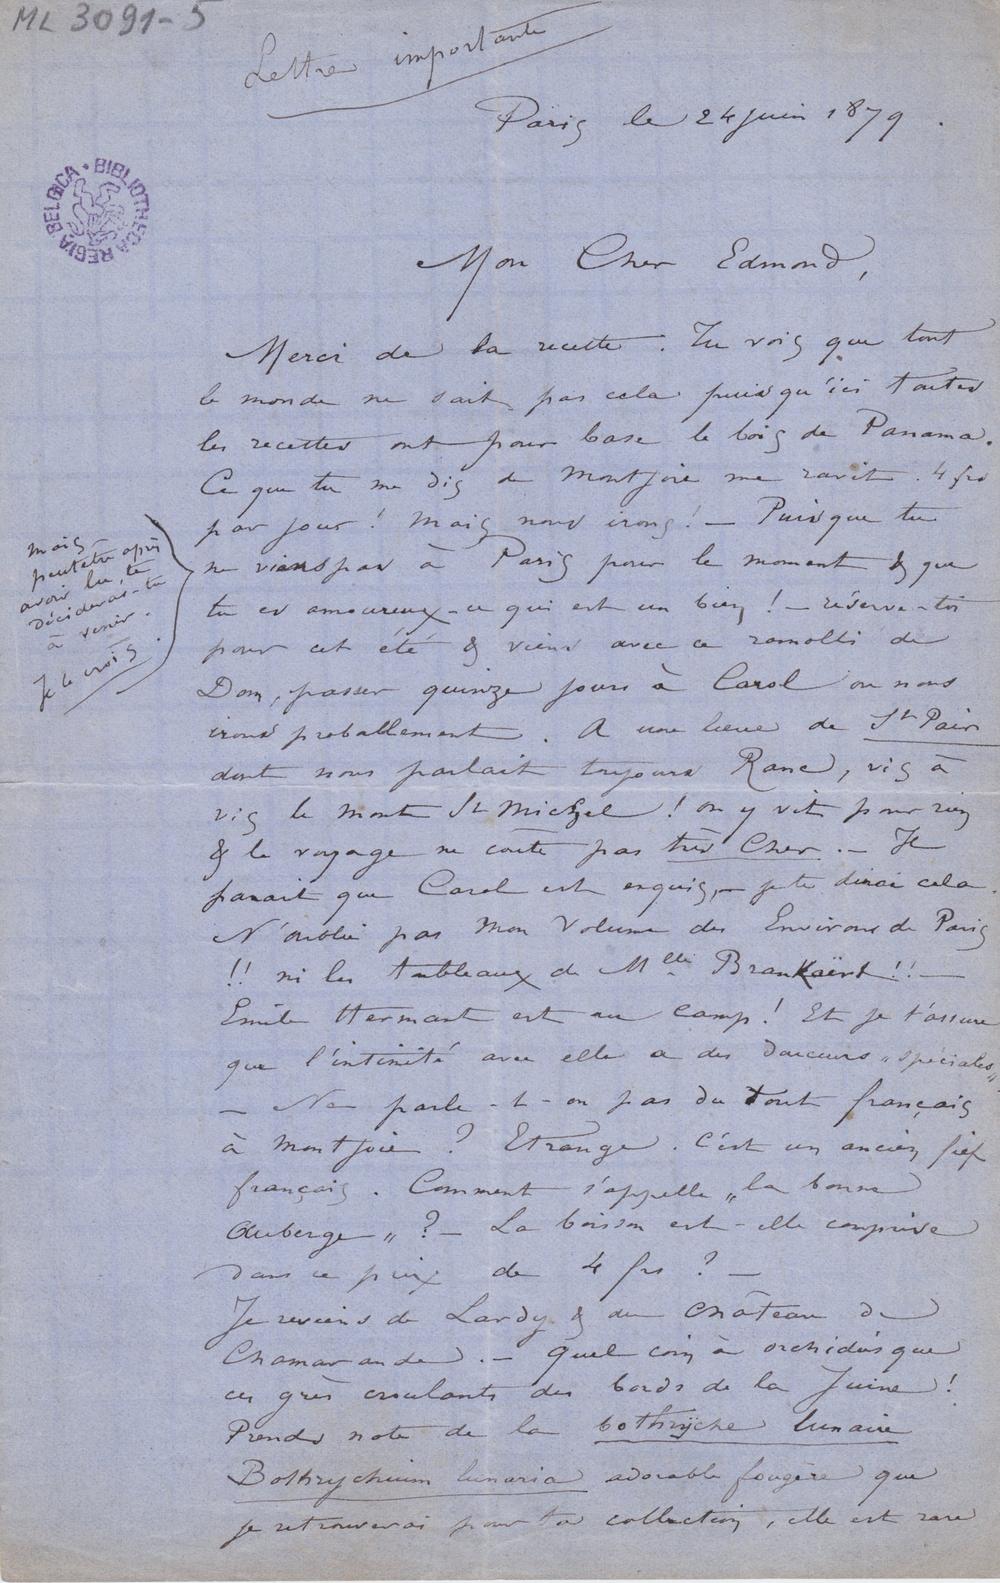 ML 3091-5
Lettre importante
Paris le 24 juin 1879.
BIBLIOTHECA REGIA BELGICA
Mon Cher Edmond,
Merci de la recette. Tu vois que tout
le monde ne sait pas cela puisqu'ici toutes
les recettes ont pour base le bois de Panama.
Ce que tu me dis de Montjoie me ravit. 4 frs
par jour! Mais nous irons! — Puisque tu
ne viens pas à Paris pour le moment & que
tu es amoureux - ce qui est un bien! — réserve-toi
pour cet été & viens avec ce ramolli de
Dom, passer quinze jours à Carol ou nous
irons probablement. A une lieue de St Pair
dont nous parlait toujours Ranc, vis à
vis le mont St Michel! on y vit pour rien
& le voyage ne coûte pas très Cher. — Il
parait que Carol est exquis, — je te dirai cela.
N'oublie pas mon Volume des Environs de Paris
!! ni les tableaux de Mlle Brankaërt!! —
Emile Hermant est au camp! Et je t'assure
que l'intimité avec elle a des douceurs „spéciales„
— Ne parle-t-on pas du tout français
à Montjoie? Etrange. C'est un ancien fief
français. Comment s'appelle „la bonne
Auberge„? — La boisson est-elle comprise
dans ce prix de 4 frs? —
Je reviens de Lardy & du Château de
Chamarande. — Quel coin à orchidées que
ces grès croulants des bords de la Juine!
Prends note de la bothryche lunaire
Bothrychium lunaria adorable fougère que
je retrouverai pour ta collection, elle est rare
mais
peutêtre après
avoir lu, te
décideras-tu
à venir.
Je le crois.